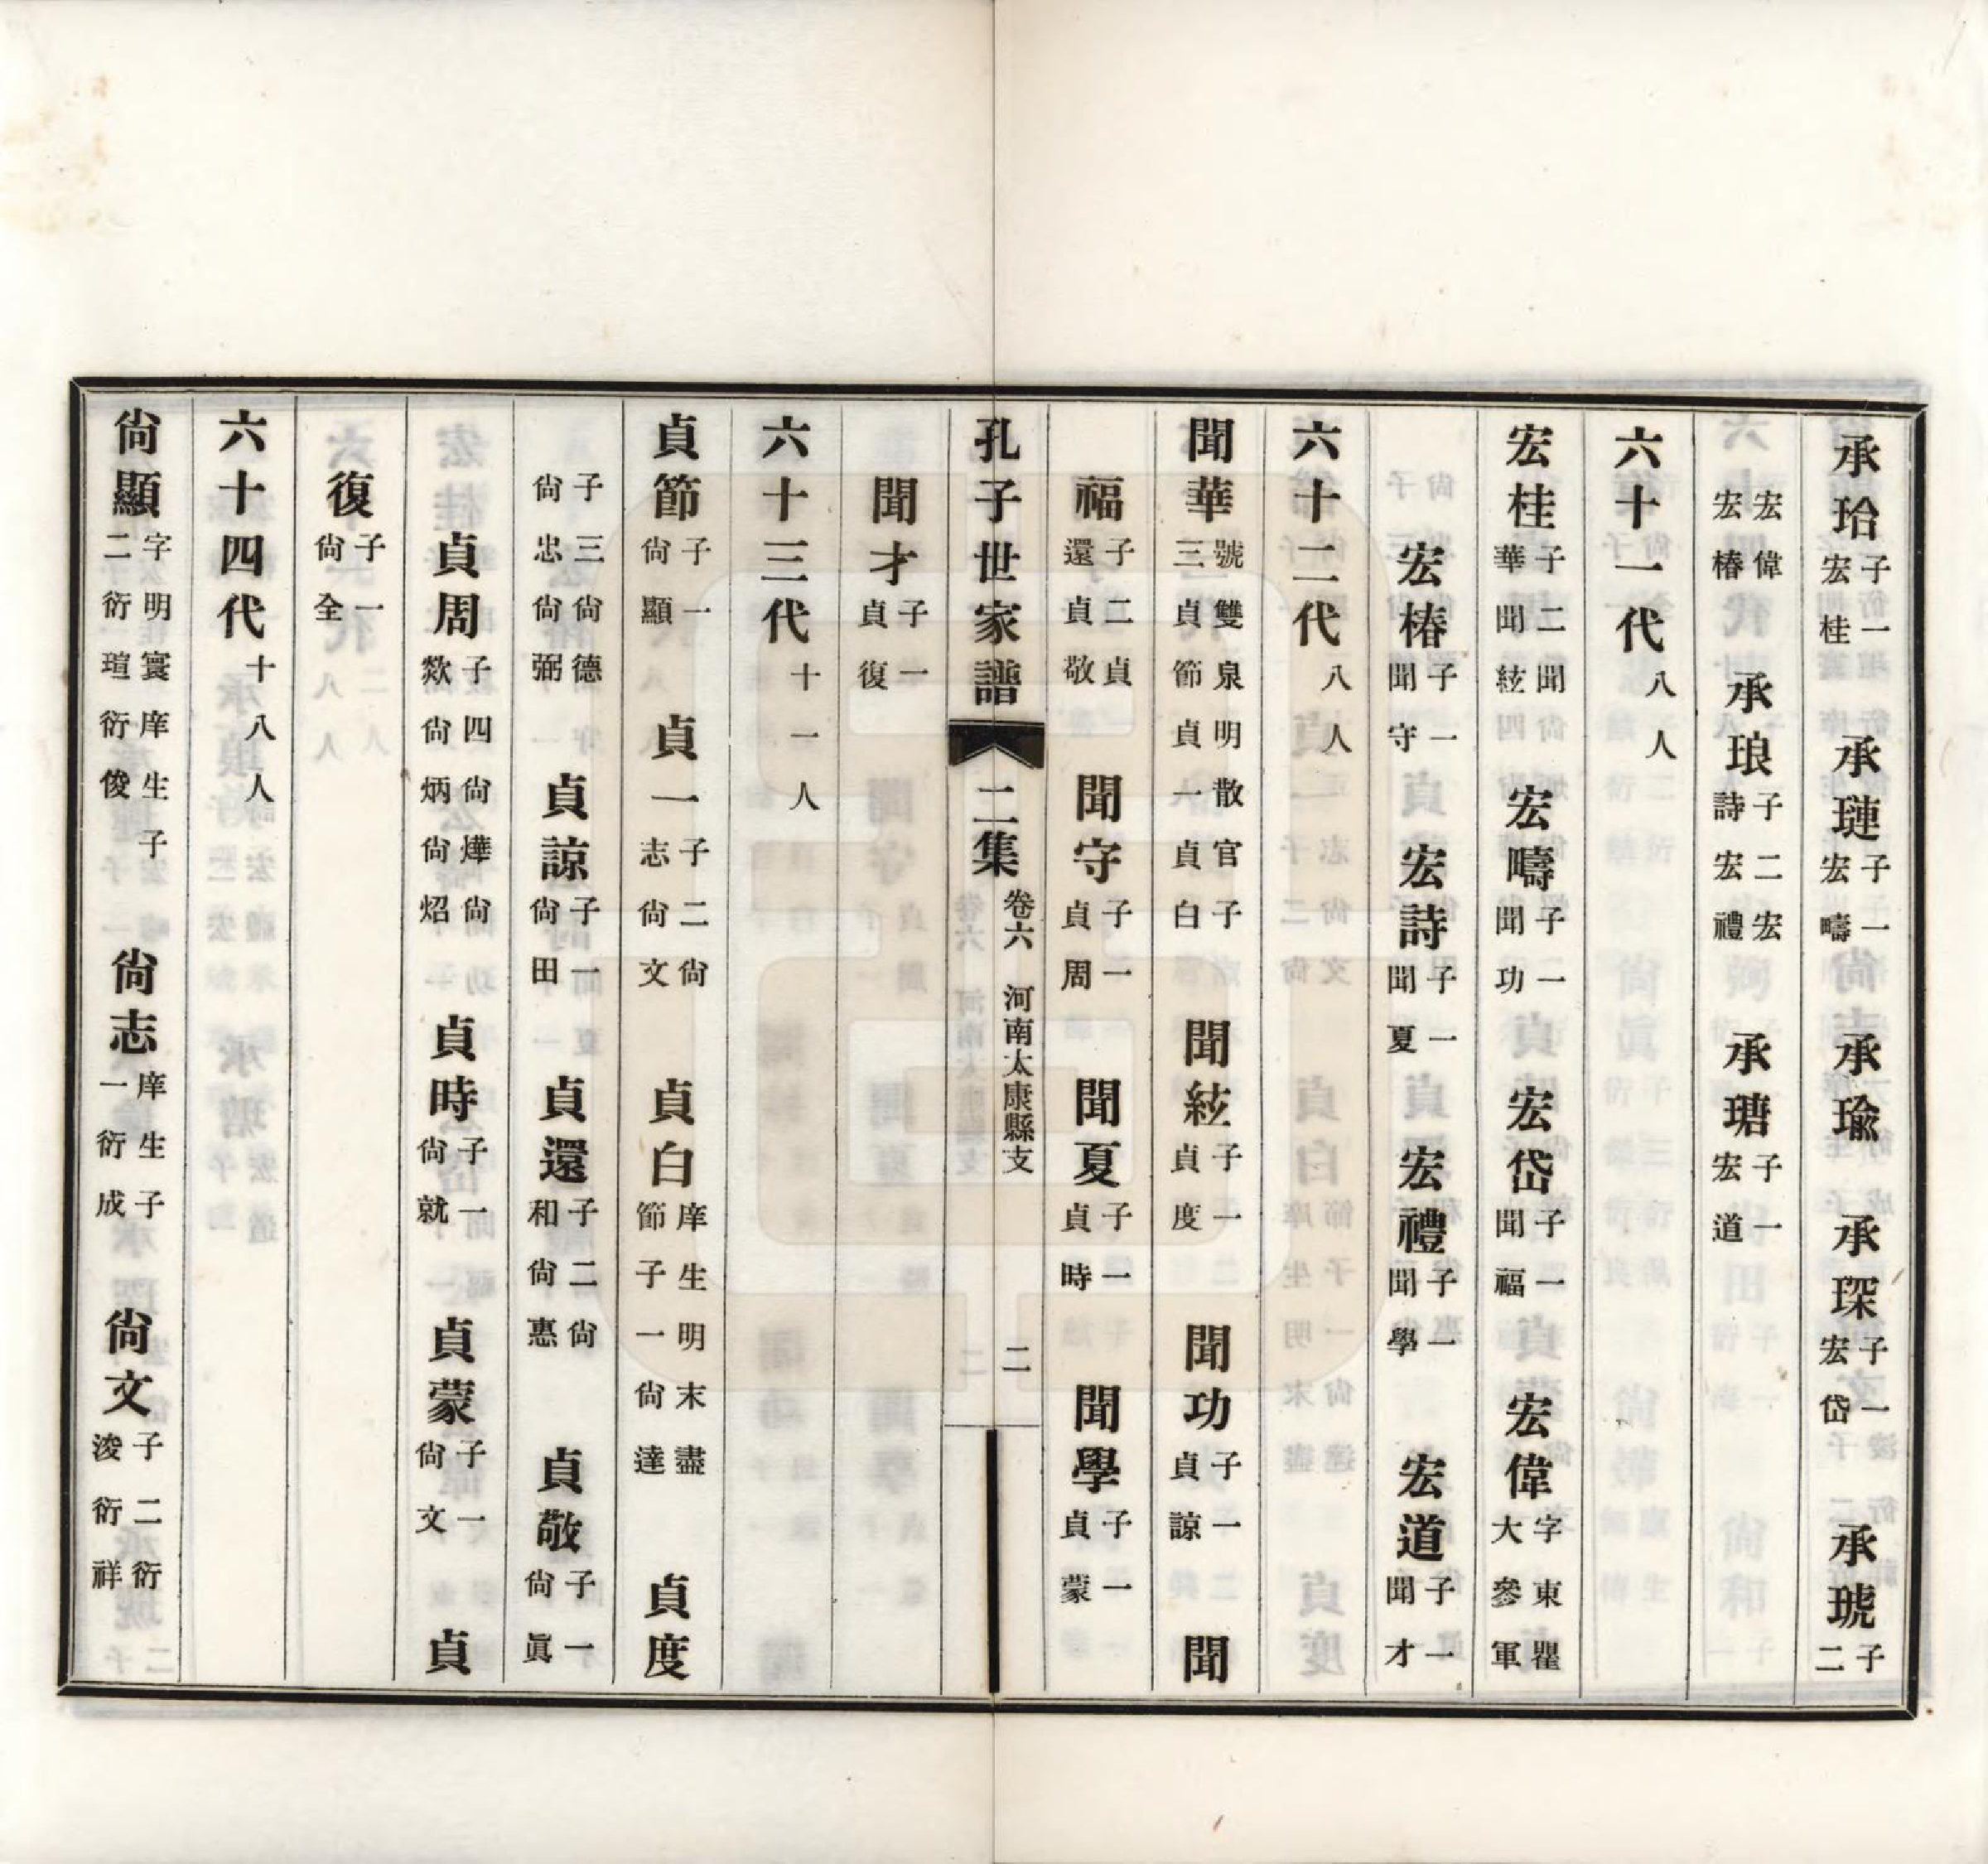 承珆子一宏桂　承璉子一宏疇　承瑜　承琛子一宏岱　承琥子二
宏偉宏椿　承琅子二宏詩宏禮　承瑭子一宏道
六十一代八人
宏桂子二聞華聞絃　宏疇子一聞功　宏岱子一聞福　宏偉字東瞿大參軍
宏椿子一聞守　宏詩子一聞夏　宏禮子一聞學　宏道子一聞才
六十二代八人
聞華號雙泉明散官子三貞節貞一貞白　聞絃子一貞度　聞功子一貞諒　聞
福子二貞還貞敬　聞守子一貞周　聞夏子一貞時　聞學子一貞蒙
孔子世家譜　二集卷六　河南太康縣支　二
聞才子一貞復
六十三代十一人
貞節子一尙顯　貞一子二尙志尙文　貞白庠生明末盡節子一尙達　貞度
子三尙德尙忠尙弼　貞諒子一尙田　貞還子二尙和尙惠　貞敬子一尙眞
貞周子四尙燁尙歘尙炳尙炤　貞時子一尙就　貞蒙子一尙文　貞
復子一尙全
六十四代十八人
尙顯字明寰庠生子二衍瑄衍俊　尙志庠生子一衍成　尙文子二衍浚衍祥